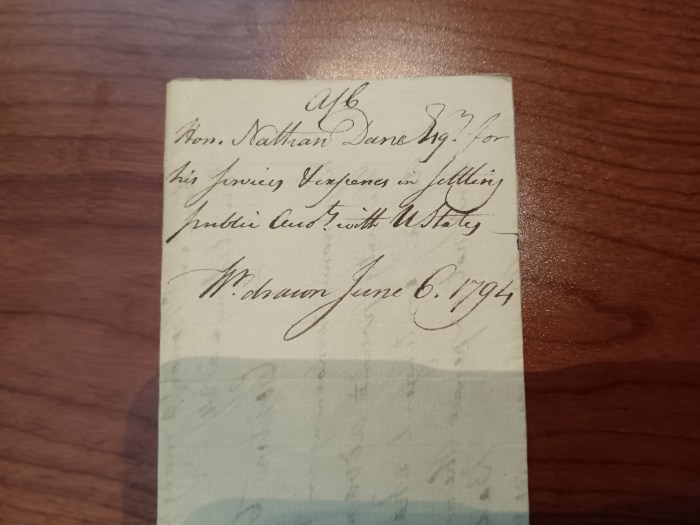 Hon. Nathan Dane Esqr. for
his services & expences in settling
public Accots. with U States
Wt. drawn June 6. 1794